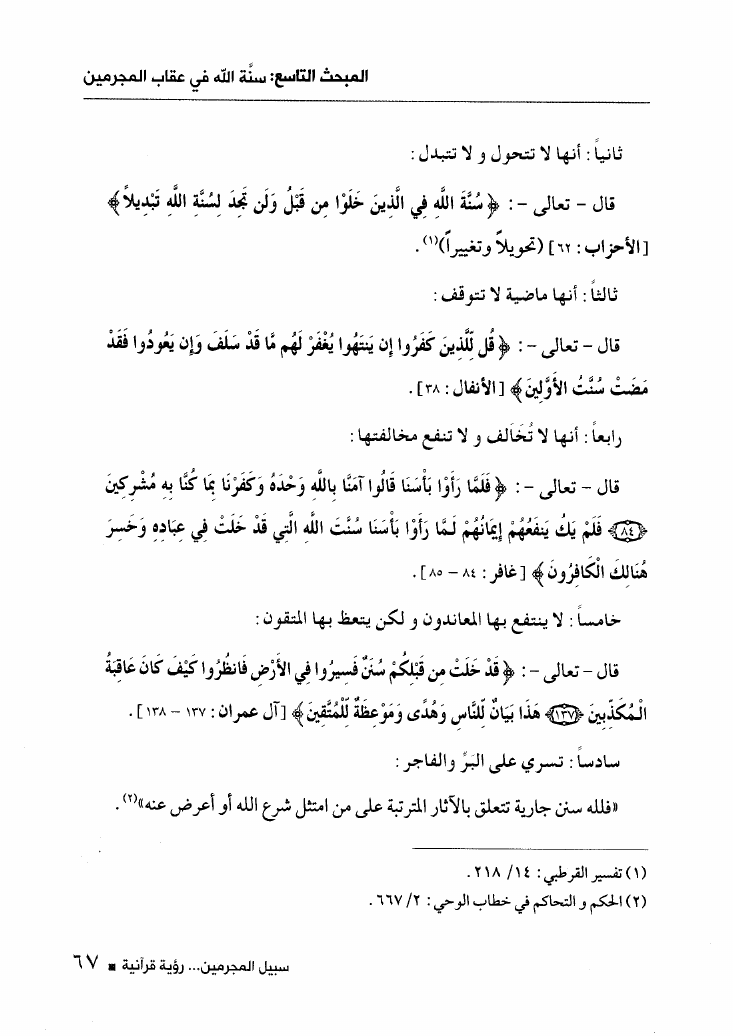 المبحث التاسع: سنَّة الله في عقاب المجرمين
ثانياً: أنها لا تتحول و لا تتبدل:
قال - تعالى -: ﴿سُنَّةَ اللَّهِ فِي الَّذِينَ خَلَوْا مِن قَبْلُ وَلَن تَجِدَ لِسُنَّةِ اللَّهِ تَبْدِيلاً﴾
[الأحزاب: ٦٢] (تحويلاً وتغييراً)(١).
ثالثاً: أنها ماضية لا تتوقف:
قال - تعالى -: ﴿قُل لِّلَّذِينَ كَفَرُوا إِن يَنتَهُوا يُغْفَرْ لَهُم مَّا قَدْ سَلَفَ وَإِن يَعُودُوا فَقَدْ
مَضَتْ سُنَّتُ الأَوَّلِينَ﴾ [الأنفال: ٣٨].
رابعاً: أنها لا تُخَالف و لا تنفع مخالفتها:
قال - تعالى -: ﴿فَلَمَّا رَأَوْا بَأْسَنَا قَالُوا آمَنَّا بِاللَّهِ وَحْدَهُ وَكَفَرْنَا بِمَا كُنَّا بِهِ مُشْرِكِينَ
﴿٨٤﴾ فَلَمْ يَكُ يَنفَعُهُمْ إِيمَانُهُمْ لَـمَّا رَأَوْا بَأْسَنَا سُنَّتَ اللَّهِ الَّتِي قَدْ خَلَتْ فِي عِبَادِهِ وَخَسِرَ
هُنَالِكَ الْكَافِرُونَ﴾ [غافر: ٨٤ - ٨٥].
خامساً: لا ينتفع بها المعاندون و لكن يتعظ بها المتقون:
قال - تعالى -: ﴿قَدْ خَلَتْ مِن قَبْلِكُمْ سُنَنٌ فَسِيرُوا فِي الأَرْضِ فَانظُرُوا كَيْفَ كَانَ عَاقِبَةُ
الْـمُكَذِّبِينَ ﴿١٣٧﴾ هَذَا بَيَانٌ لِّلنَّاسِ وَهُدًى وَمَوْعِظَةٌ لِّلْمُتَّقِينَ﴾ [آل عمران: ١٣٧ - ١٣٨].
سادساً: تسري على البَرِّ والفاجر:
«فلله سنن جارية تتعلق بالآثار المترتبة على من امتثل شرع الله أو أعرض عنه»(٢).
(١) تفسير القرطبي: ١٤/ ٢١٨.
(٢) الحكم و التحاكم في خطاب الوحي: ٢/ ٦٦٧.
سبيل المجرمين... رؤية قرآنية ■ ٦٧